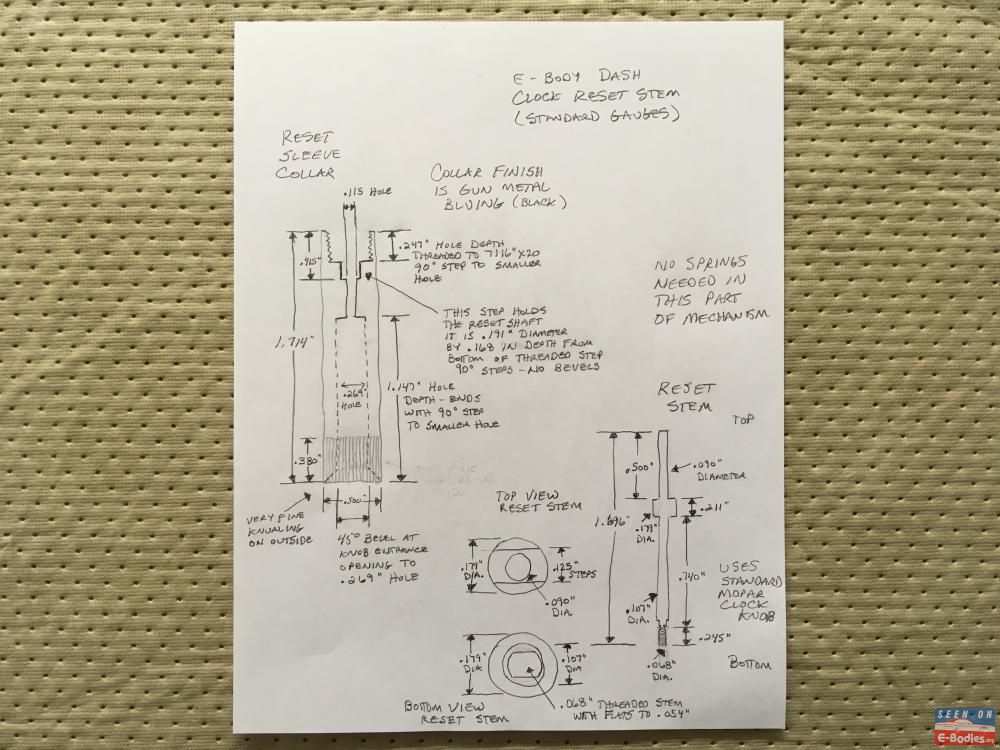 E-BODY DASH
CLOCK RESET STEM
(STANDARD GAUGES)
RESET
SLEEVE
COLLAR
COLLAR FINISH
IS GUN METAL
BLUING (BLACK)
.115 HOLE
.415"
.247" HOLE DEPTH
THREADED TO 7/16"X20
90° STEP TO SMALLER
HOLE
NO SPRINGS
NEEDED IN
THIS PART
OF MECHANISM
THIS STEP HOLDS
THE RESET SHAFT
IT IS .191" DIAMETER
BY .168 IN DEPTH FROM
BOTTOM OF THREADED STEP
90° STEPS - NO BEVELS
1.714"
.269"
HOLE
1.147" HOLE
DEPTH - ENDS
WITH 90° STEP
TO SMALLER HOLE
.380"
.500"
VERY FINE
KNURLING
ON OUTSIDE
45° BEVEL AT
KNOB ENTRANCE
OPENING TO
.269" HOLE
RESET
STEM
TOP
.500"
.090"
DIAMETER
.211"
1.696"
.179"
DIA.
.740"
.107"
DIA.
USES
STANDARD
MOPAR
CLOCK
KNOB
.245"
.068"
DIA.
BOTTOM
TOP VIEW
RESET STEM
.179"
DIA.
.125"
STEPS
.090"
DIA.
.179"
DIA
.107"
DIA
.068" THREADED STEM
WITH FLATS TO .054"
BOTTOM VIEW
RESET STEM
SEEN ON
E-Bodies.org